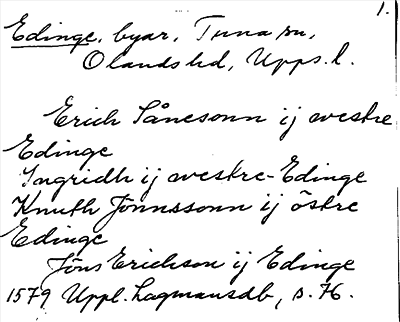 1.
Edinge, byar, Tuna sn,
Olands hd, Upps. l.
Erich Lånesonn ij westre
Edinge
Ingridh ij westre-Edinge
Knuth Jönnssonn ij östre
Edinge
Jöns Erichson ij Edinge
1579 Uppl. Lagmansdb, s. 76.